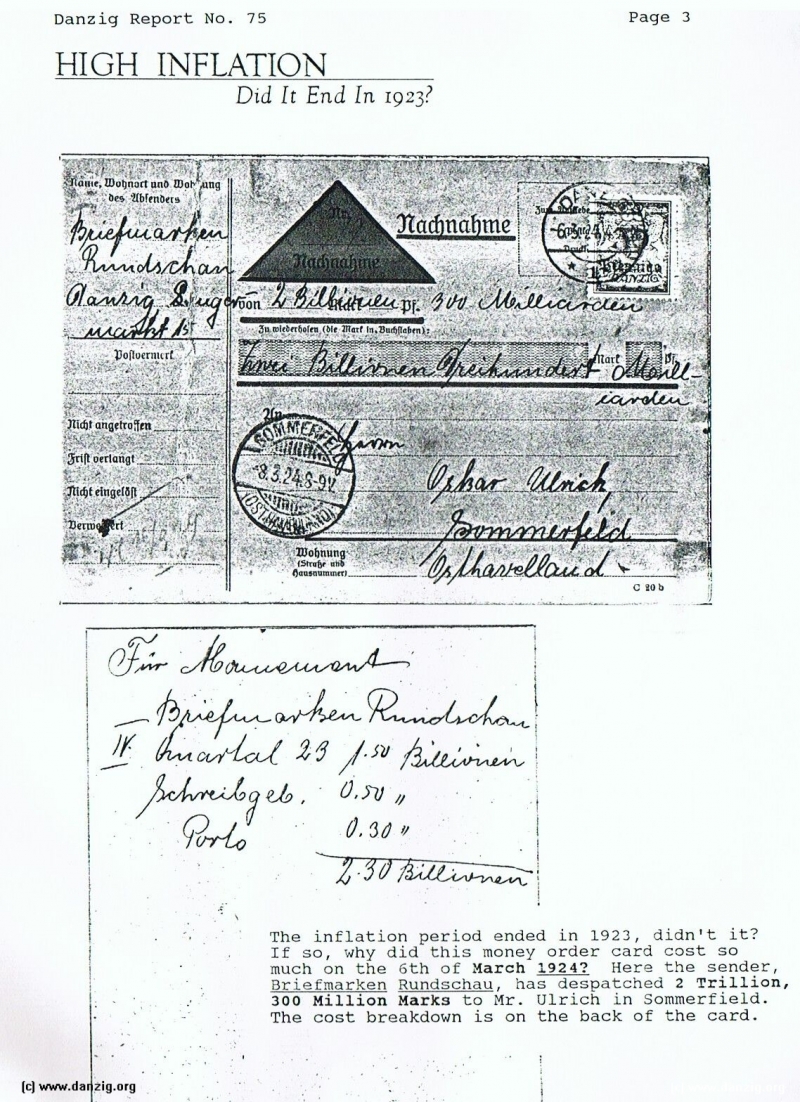 Danzig Report No. 75 Page 3
HIGH INFLATION
Did It End In 1923?
Name, Wohnort und Wohnung
des Absenders
Briefmarken
Rundschau
Danzig
markt 15
Postvermerk
Nicht angetroffen
Frist verlangt
Nicht eingelöst
Verweigert
Nr.
Nachnahme
Nachnahme
von 2 Billionen Pf. 300 Milliarden
Zu wiederholen (die Mark in Buchstaben):
Zwei Billionen Dreihundert Mark Mill- Pf.
iarden
An
Herrn
SOMMERFELD
-8.3.24.8-9V
(OSTHAVELLAND)
Oskar Ulrich
Sommerfeld
Wohnung
(Straße und
Hausnummer)
Osthavelland
C 20 b
DANZIG
Für Abonnement
Briefmarken Rundschau
IV. Quartal 23 1.50 Billionen
Schreibgeb. 0.50 "
Porto 0.30 "
2.30 Billionen
The inflation period ended in 1923, didn't it?
If so, why did this money order card cost so
much on the 6th of March 1924? Here the sender,
Briefmarken Rundschau, has despatched 2 Trillion,
300 Million Marks to Mr. Ulrich in Sommerfield.
The cost breakdown is on the back of the card.
(c) www.danzig.org